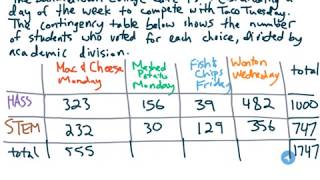 day of the week to compete with Taco Tuesday.
The contingency table below shows the number
of students who voted for each choice, divided by
academic division.
Mac & Cheese Monday | Mashed Potato Monday | Fish & Chips Friday | Wonton Wednesday | total
HASS 323 156 39 482 1000
STEM 232 30 129 356 747
total 555 1747